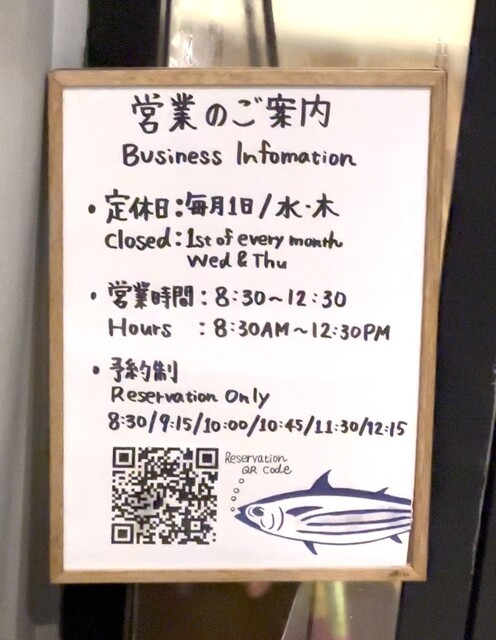 営業のご案内
Business Infomation
・定休日：毎月1日/水・木
Closed：1st of every month
Wed & Thu
・営業時間：8:30〜12:30
Hours ：8:30AM〜12:30PM
・予約制
Reservation Only
8:30/9:15/10:00/10:45/11:30/12:15
Reservation
QR code